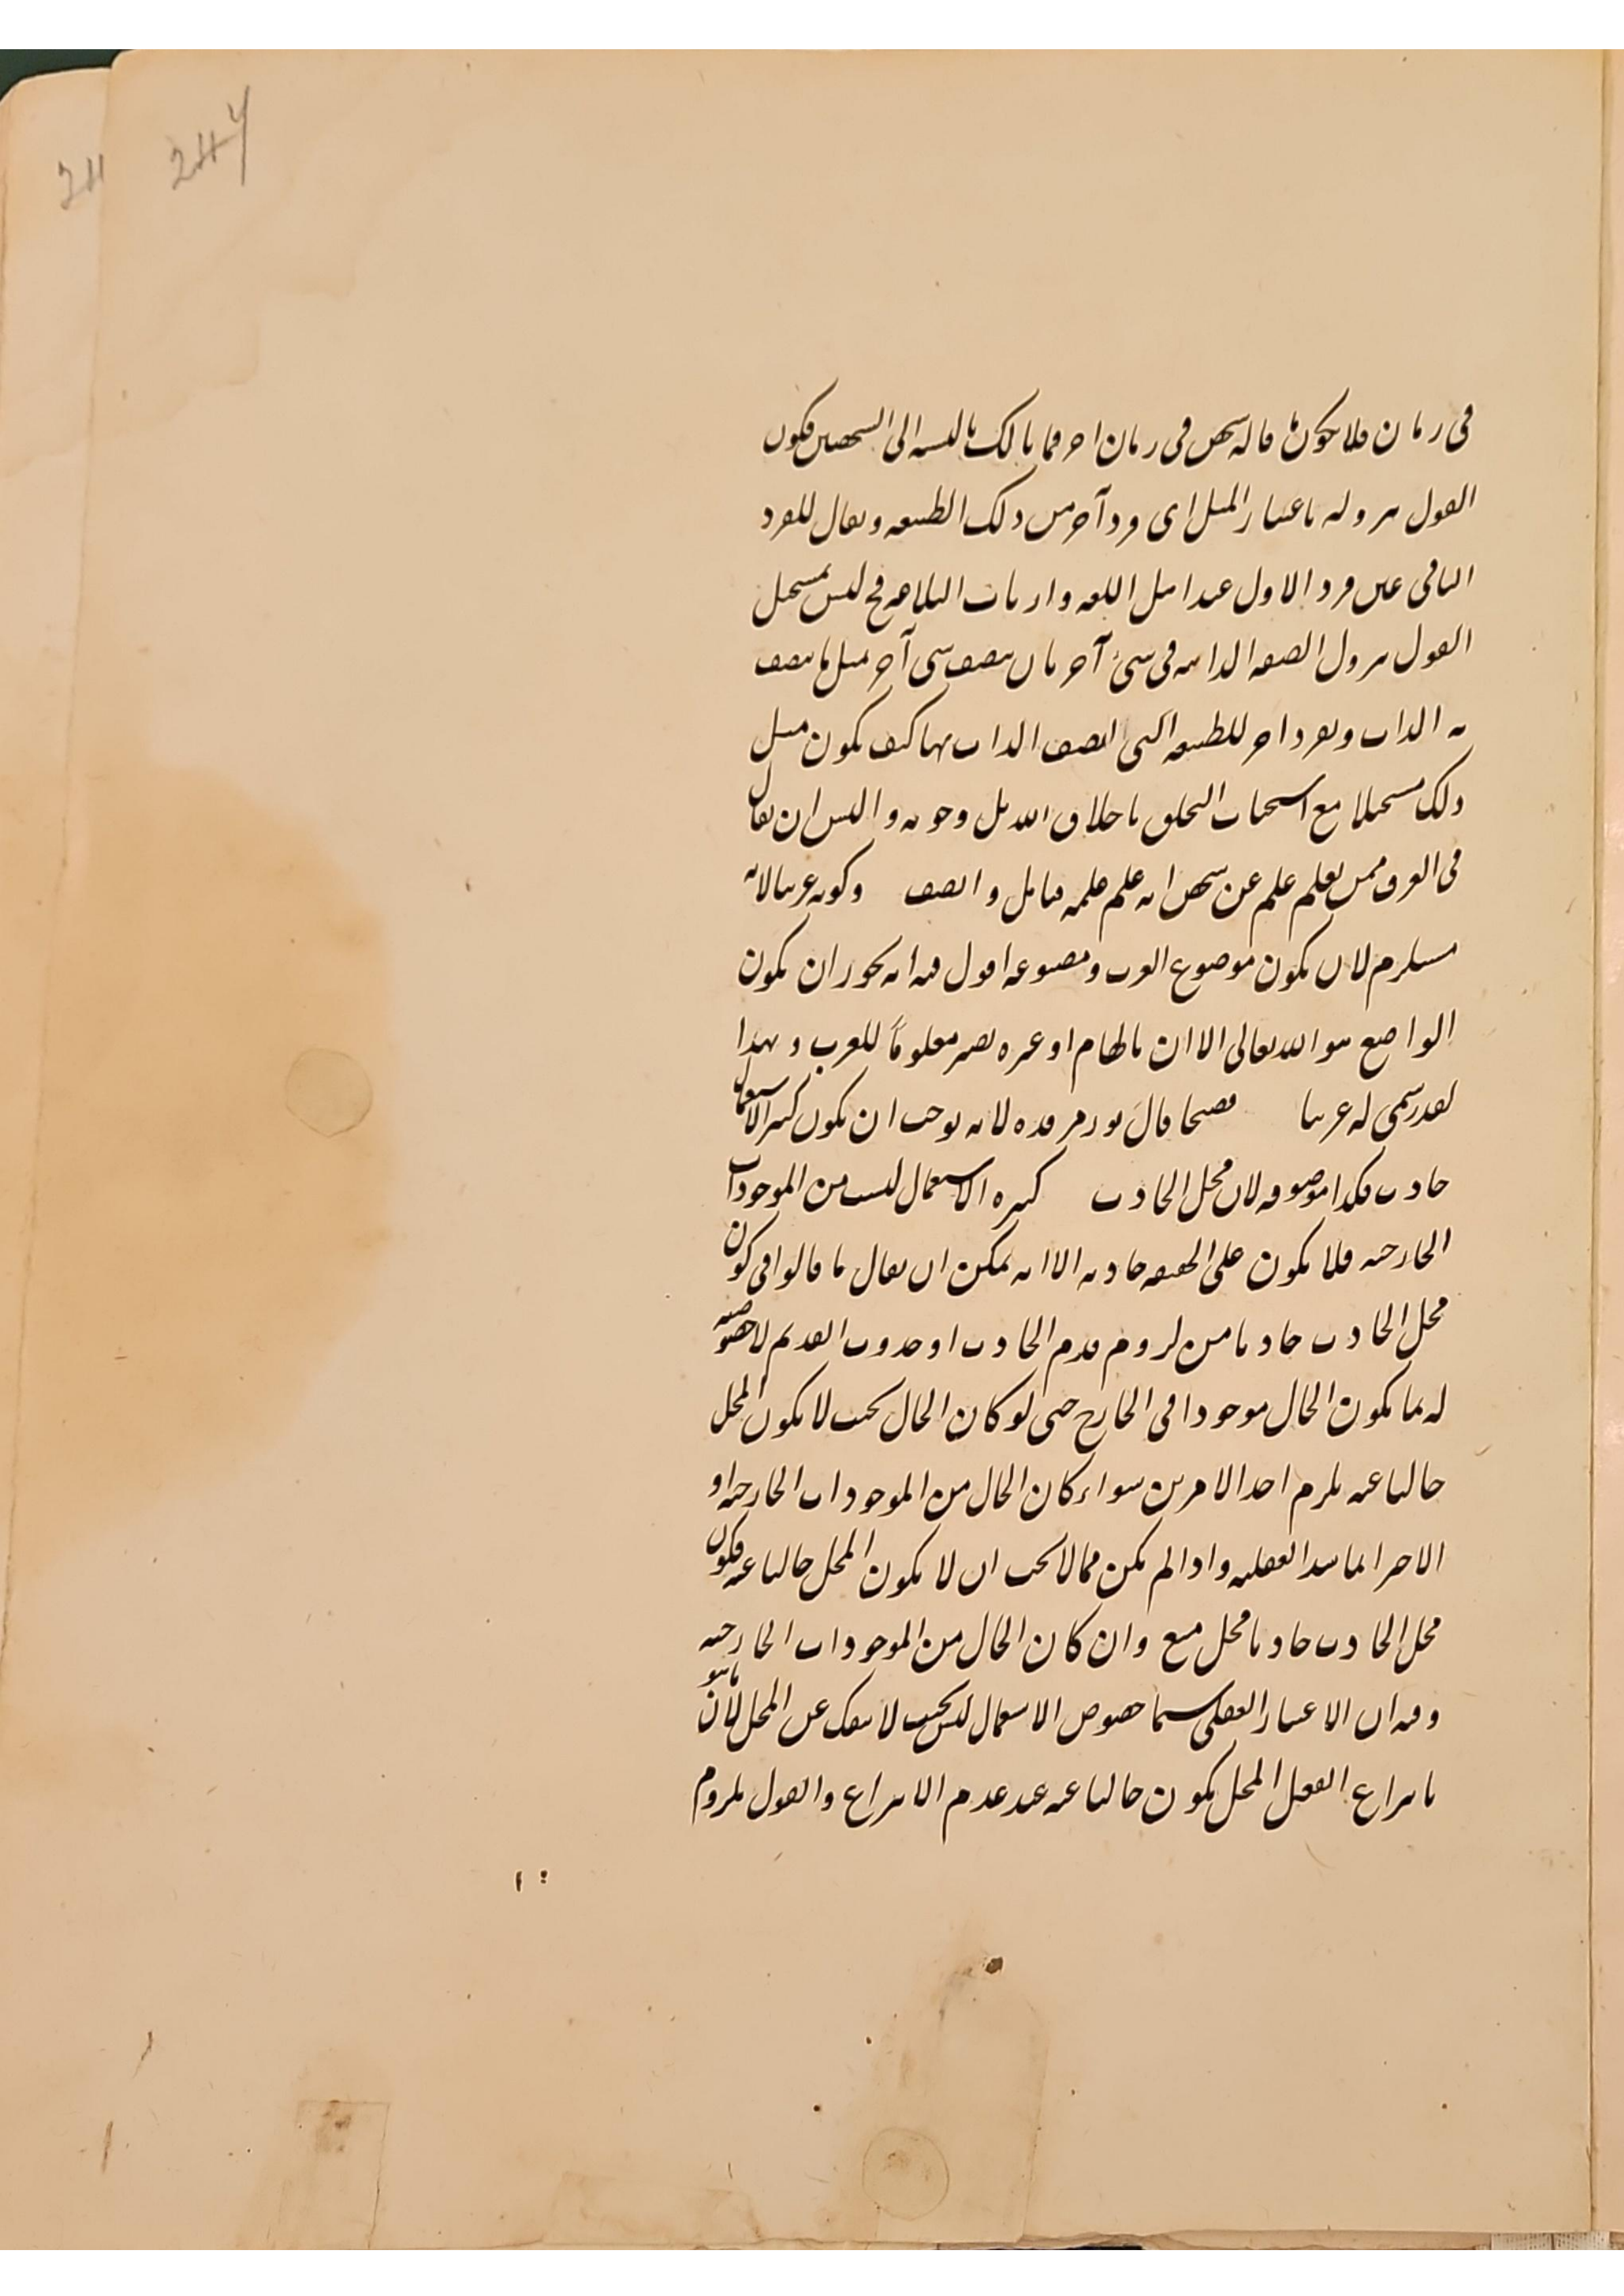 244
24
فى زمان فلا يكون ما قاله شخص فى زمان آخر فما بالك بالنسبة الى الشخصين فيكون
القول بنزوله باعتبار المثل اى فرد آخر من ذلك الطبيعه ويقال للفرد
الثانى عين فرد الاول عند اهل اللغه وارباب البلاغه فح ليس بمستحيل
القول بنزول الصفه الذاتيه فى شئ آخر بان يتصف شى آخر مثل ما يتصف
به الذات وبفرد آخر للطبيعه التى اتصف الذات بها كيف يكون مثل
ذلك مستحيلا مع استحباب التخلق باخلاق الله بل وجوبه واليس ان يقال
فى العرف ممن تعلم علم عن شخص انه علم علمه فتامل وانصف وكونه عربيا لانه
مستلزم لان يكون موضوع العرب ومصنوعه اقول فيه انه يجوز ان يكون
الواضع هو الله تعالى الا ان بالهام او غيره يصير معلوماً للعرب وبهذا
القدر سمى له عربيا فصيحا قال نور مرقده لانه يوجب ان يكون كثير الاستعمال
حادث فكذا موصوفه لان محل الحادث كثيره الاستعمال ليست من الموجودات
الخارجيه فلا يكون على الحقيقه حادثه الا انه يمكن ان يقال ما قالوا فى كون
محل الحادث حادثا من لزوم قدم الحادث او حدوث القديم لا خصوصيه
له بما يكون الحال موجودا فى الخارج حتى لو كان الحال بحيث لا يكون المحل
خاليا عنه يلزم احد الامرين سواء كان الحال من الموجودات الخارجيه او
العقليه واذا لم يكن مما لا يجب ان لا يكون المحل خاليا عنه فيكون
محل الحادث حادثا محل منع وان كان الحال من الموجودات الخارجيه
وفيه ان الاعتبار العقلى سيما خصوص الاستعمال ليس بحيث لا ينفك عن المحل لان ما هو
بانتزاع العقل المحل يكون خاليا عنه عند عدم الانتزاع والقول بلزوم